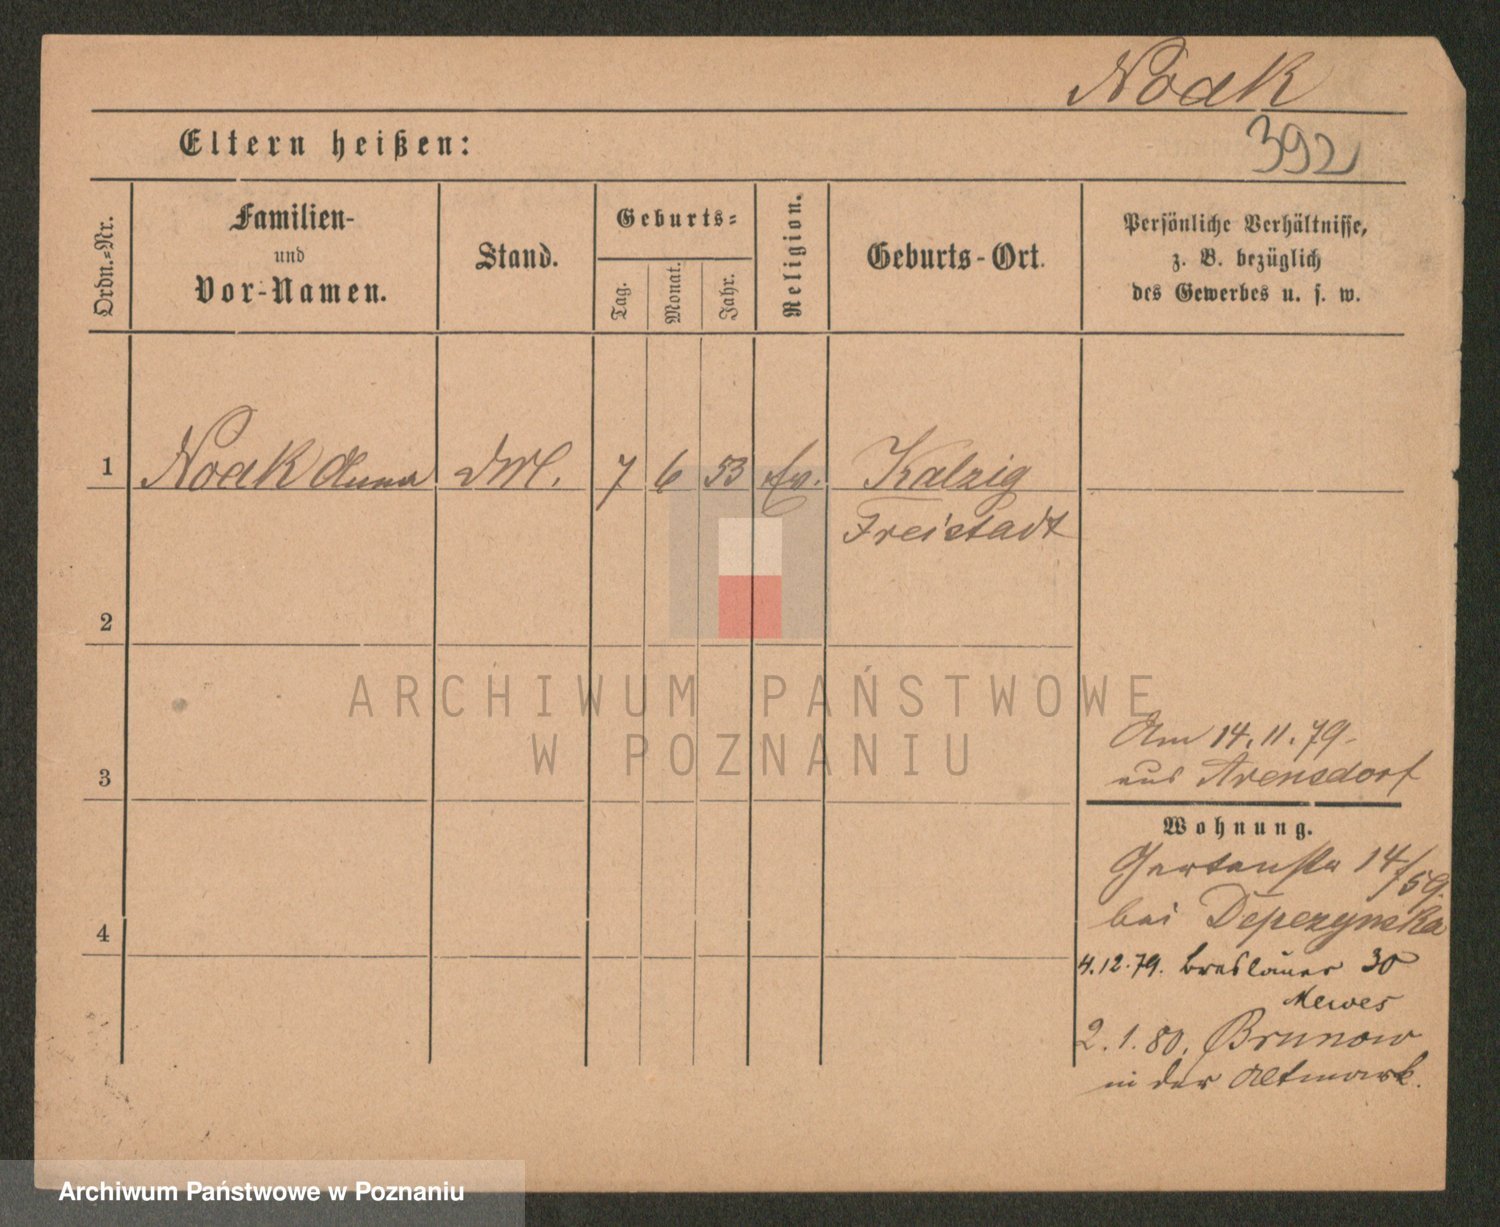 Noak
Eltern heißen:
392
Ordn.-Nr.
Familien-
und
Vor-Namen.
Stand.
Geburts-
Tag.
Monat.
Jahr.
Religion.
Geburts-Ort.
Persönliche Verhältnisse,
z. B. bezüglich
des Gewerbes u. s. w.
1 Noak Anna 7 6 53 Ev. Kalzig
Freistadt
2
ARCHIWUM PAŃSTWOWE
W POZNANIU
3
Am 14.11.79.
aus Arensdorf
Wohnung.
Gartenstr 14/59.
bei Depczynska
4
4.12.79. Breslauer 30
Mewes
2.1.80. Brunow
in der Altmark.
Archiwum Państwowe w Poznaniu